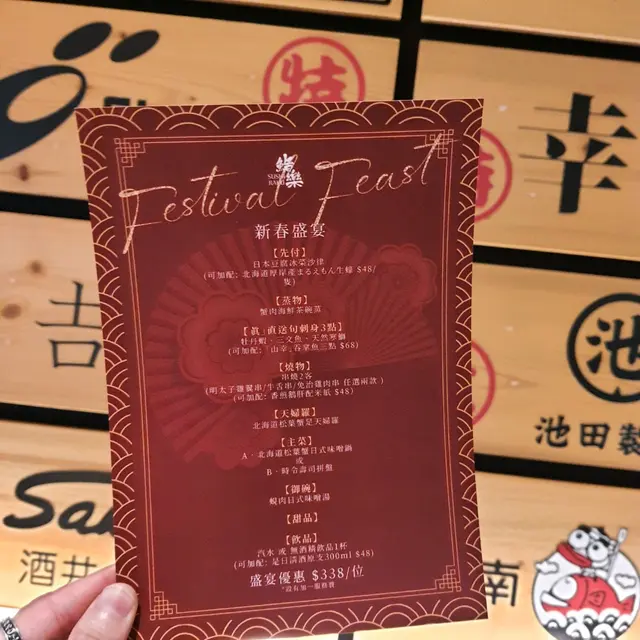 焼
幸
Festival Feast
SUSHI
RAKU
樂
新春盛宴
【先付】
日本豆腐冰菜沙律
(可加配: 北海道厚岸產まるえもん生蠔 $48/
隻)
【蒸物】
蟹肉海鮮茶碗蒸
【眞」直送旬刺身3點】
牡丹蝦、三文魚、天然寒鰤
(可加配:「山幸」吞拿魚三點 $68)
【燒物】
串燒2客
(明太子雞翼串/牛舌串/免治雞肉串 任選兩款 )
(可加配: 香煎鵝肝配米紙 $48)
【天婦羅】
北海道松葉蟹足天婦羅
【主菜】
A．北海道松葉蟹日式味噌鍋
或
B．時令壽司拼盤
【御碗】
蜆肉日式味噌湯
【甜品】
【飲品】
汽水 或 無酒精飲品1杯
(可加配: 是日清酒原支300ml $48)
盛宴優惠 $338/位
*設有加一服務費
吉
池
池田製
Sa
酒井
南